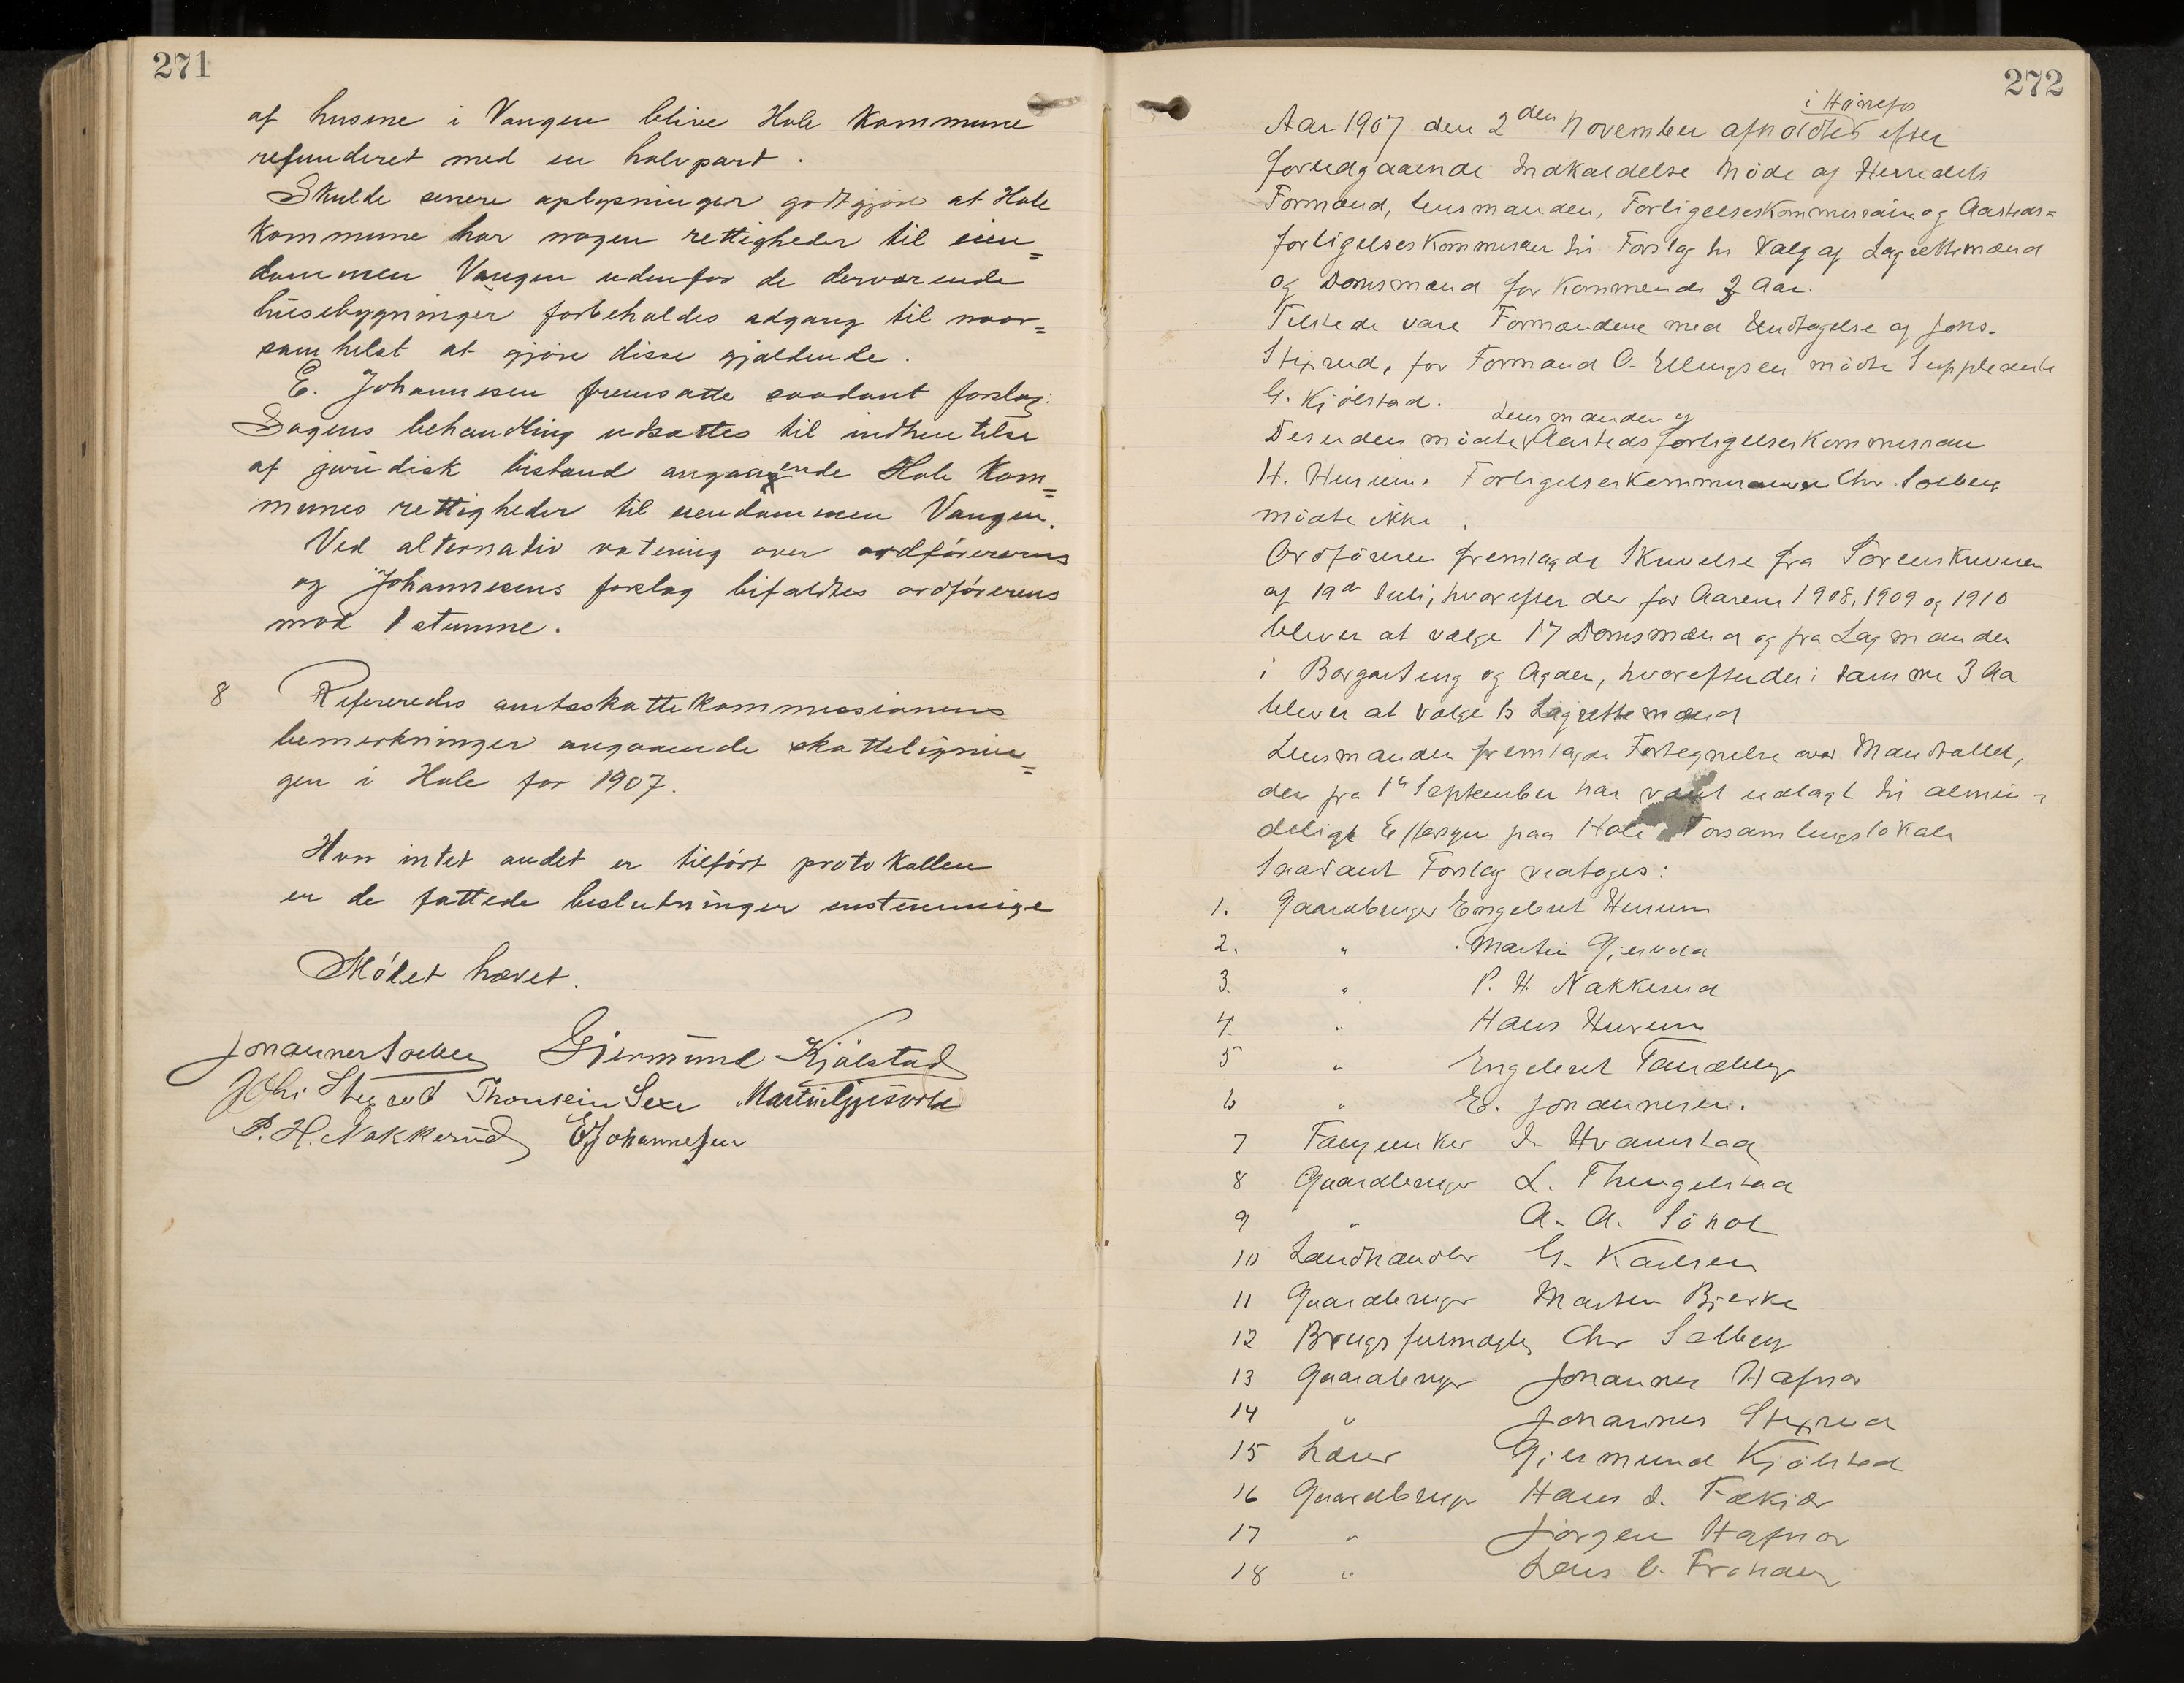 271
af husene i Vangen blive Hole kommune
refunderet med en halvpart.
Skulde senere oplysninger godtgjøre at Hole
kommune har nogen rettigheder til eien=
dommen Vangen udenfor de derværende
husebygninger forbeholdes adgang til naar=
somhelst at gjøre disse gjældende.
E. Johannesen fremsatte saadant forslag:
Sagens behandling udsættes til indhentelse
af juridisk bistand angaaende Hole kom=
munes rettigheder til eiendommen Vangen.
Ved alternativ votering over ordførerens
og Johannesens forslag bifaldtes ordførerens
mod 1 stemme.
8 Refereredes amtsskattekommissionens
bemerkninger angaaende skattelignin=
gen i Hole for 1907.
Hvor intet andet er tilført protokollen
er de fattede beslutninger enstemmige
Mødet hævet.
Johannes Solberg Gjermund Kjølstad
Johs. Stixrud Thorstein Sexe Martin Gjesvold
P. H. Nakkerud E Johannesen
272
i Hønefos
Aar 1907 den 2den November afholdtes efter
forudgaaende Indkaldelse Møde af Herredets
Formænd, Lensmanden, Forligelseskommissær og Aasteds=
forligelseskommissær til Forslag til Valg af Lagrettemænd
og Domsmænd for kommende 3 Aar.
Tilstede vare Formændene med Undtagelse af Johs.
Stixrud, for Formand O. Ellingsen mødte Suppleant
G. Kjølstad.
Lensmanden og
Desuden mødte Aasteds forligelseskommissær
H. Hurum. Forligelseskommissær Chr. Solberg
mødte ikke.
Ordføreren fremlagde Skrivelse fra Sorenskriveren
af 19de Juli, hvorefter der for Aarene 1908, 1909 og 1910
bliver at vælge 17 Domsmænd og fra Lagmanden
i Borgarting og Agder, hvorefter der i samme 3 Aa
bliver at vælge 13 Lagrettemænd
Lensmanden fremlagde Fortegnelse over Mandtallet,
der fra 1ste September har været udlagt til almin=
deligt Eftersyn paa Hole Forsamlingslokale
Saadant Forslag vedtoges:
1. Gaardbruger Engebret Hurum
2. " Martin Gjesvold
3. " P. H. Nakkerud
4. " Hans Hurum
5 " Engebret Tandberg
6 " E. Johannesen.
7 Hvamstad
8 Gaardbruger L. Thingelstad
9 " A. A. Søhol
10 Landhandler G. Karlsen
11 Gaardbruger Morten Bjerke
12 Brugsfuldmægtig Chr Solberg
13 Gaardbruger Johannes Hafnor
14 " Johannes Stixrud
15 Lærer Gjermund Kjølstad
16 Gaardbruger Hans
17 " Jørgen Hafnor
18 " Lars